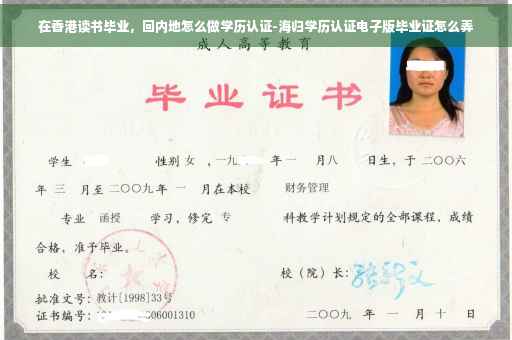 在香港读书毕业，回内地怎么做学历认证-海归学历认证电子版毕业证怎么弄
成人高等教育
毕业证书
学生 性别 女 ，一九 年一 月八 日生，于二〇〇六
年 三 月至二〇〇九年 一 月在本校 财务管理
专业 函授 学习，修完 专 科教学计划规定的全部课程，成绩
合格，准予毕业。
校 名： 校（院）长：
批准文号：教计[1998]33号
证书编号： 06001310 二〇〇九 年 一 月 十 日